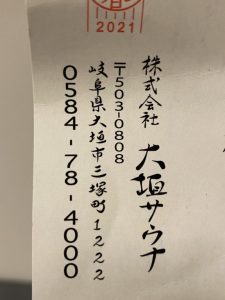 2021
株式会社 大垣サウナ
〒503-0808
岐阜県大垣市三塚町1222
0584-78-4000